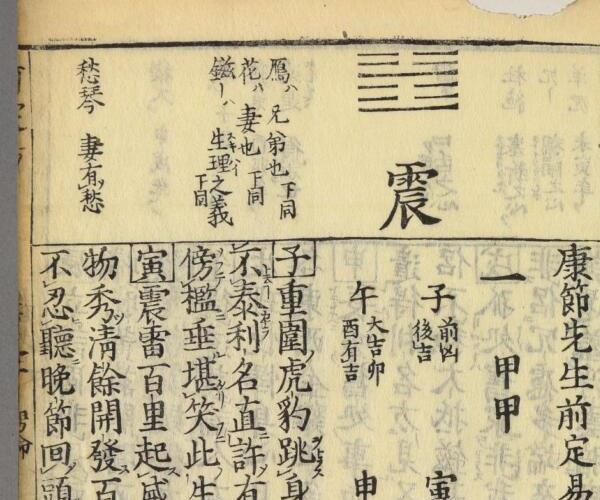 震
鴈ハ兄弟也下同
花ハ妻也下同
鎡ーハ生理之義下同
愁琴 妻有愁
康節先生前定易
一 甲甲
子 前凶後吉
寅
午 大吉卯酉有吉
申
子重圍虎豹跳身
不泰利名直許有
傍檻垂堪笑此生
寅震雷百里起
物秀清餘開發百
不忍聽晩節回頭